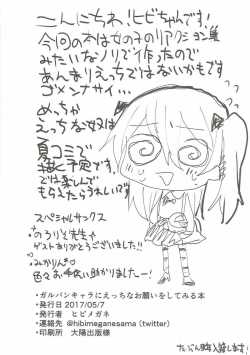 こんにちわ!ヒビちゃんです!
今回の本は女の子のリアクション集
みたいなノリで作ったので
あんまりえっちではないかもです
ゴメンナサイ…
めっちゃ
えっちな奴は
夏コミで
予定です。
では楽しんで
もらえたらうれしいです
スペシャルサンクス
のろりえ先生
ゲストありがとうございました!!
みかりん
色々お手伝い助かりましたー!
・ガルパンキャラにえっちなお願いをしてみる本
・発行日 2017/05/7
・発行者 ヒビメガネ
・連絡先 @hibimeganesama (twitter)
・印刷所 大陽出版様